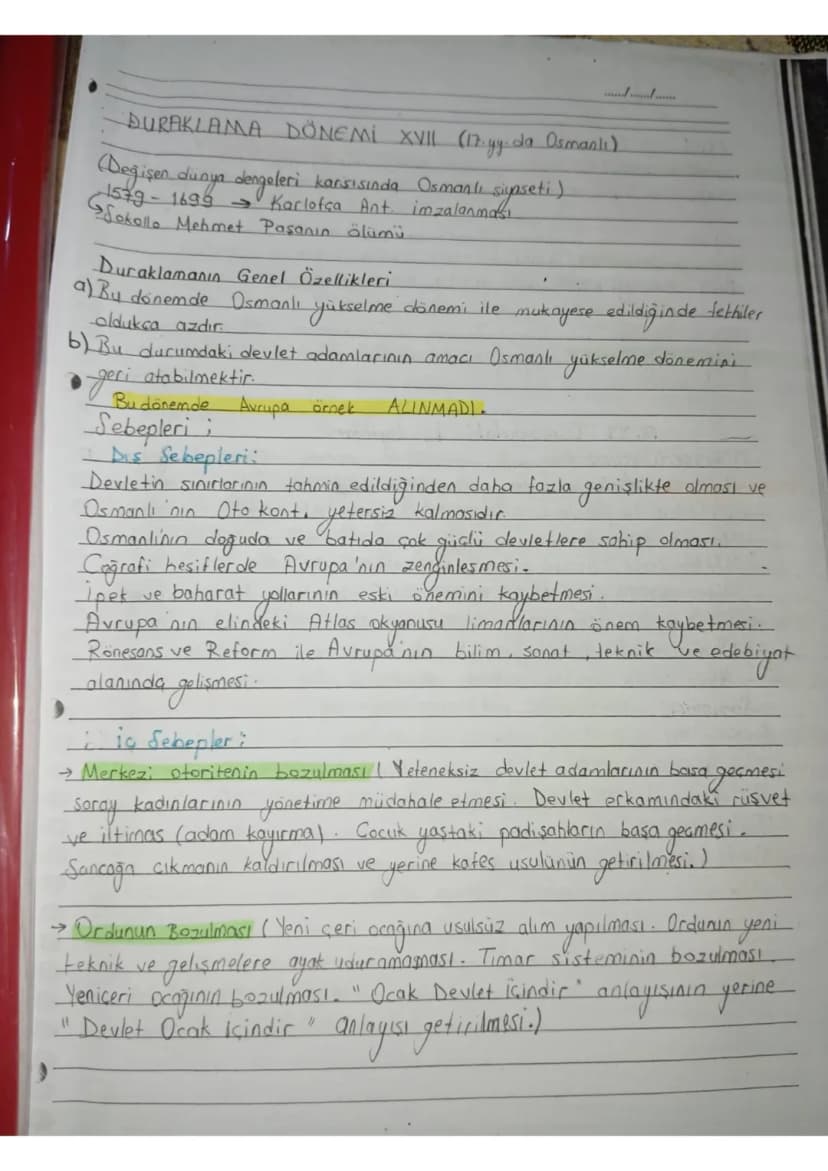 ....../....../......
DURAKLAMA DÖNEMİ XVII (17.yy.da Osmanlı)
(Değişen dünya dengeleri karşısında Osmanlı siyaseti)
1579 - 1699 → Karlofça Ant. imzalanması
↳Sokollo Mehmet Paşanın ölümü
Duraklamanın Genel Özellikleri
a) Bu dönemde Osmanlı yükselme dönemi ile mukayese edildiğinde fetihler
oldukça azdır.
b) Bu durumdaki devlet adamlarının amacı Osmanlı yükselme dönemini
geri atabilmektir.
Bu dönemde Avrupa örnek ALINMADI.
Sebepleri ;
Dış Sebepleri:
Devletin sınırlarının tahmin edildiğinden daha fazla genişlikte olması ve
Osmanlı'nın Oto kont. yetersiz kalmasıdır.
Osmanlının doğuda ve batıda çok güçlü devletlere sahip olması.
Coğrafi keşiflerde Avrupa'nın zenginleşmesi.
İpek ve baharat yollarının eski önemini kaybetmesi.
Avrupa'nın elindeki Atlas okyanusu limanlarının önem kaybetmesi.
Rönesans ve Reform ile Avrupa'nın bilim, sanat, teknik ve edebiyat
alanında gelişmesi.
iç Sebepler:
→ Merkezi otoritenin bozulması ( Yeteneksiz devlet adamlarının başa geçmesi
saray kadınlarının yönetime müdahale etmesi. Devlet erkamındaki rüşvet
ve iltimas (adam kayırma). Çocuk yaştaki padişahların başa geçmesi.
Sancağa çıkmanın kaldırılması ve yerine kafes usulünün getirilmesi.)
→ Ordunun Bozulması ( Yeni çeri ocağına usulsüz alım yapılması. Ordunun yeni
teknik ve gelişmelere ayak uduramaması. Tımar sisteminin bozulması.
Yeniçeri ocağının bozulması. " Ocak Devlet içindir " anlayışının yerine
" Devlet Ocak içindir " anlayışı getirilmesi.)